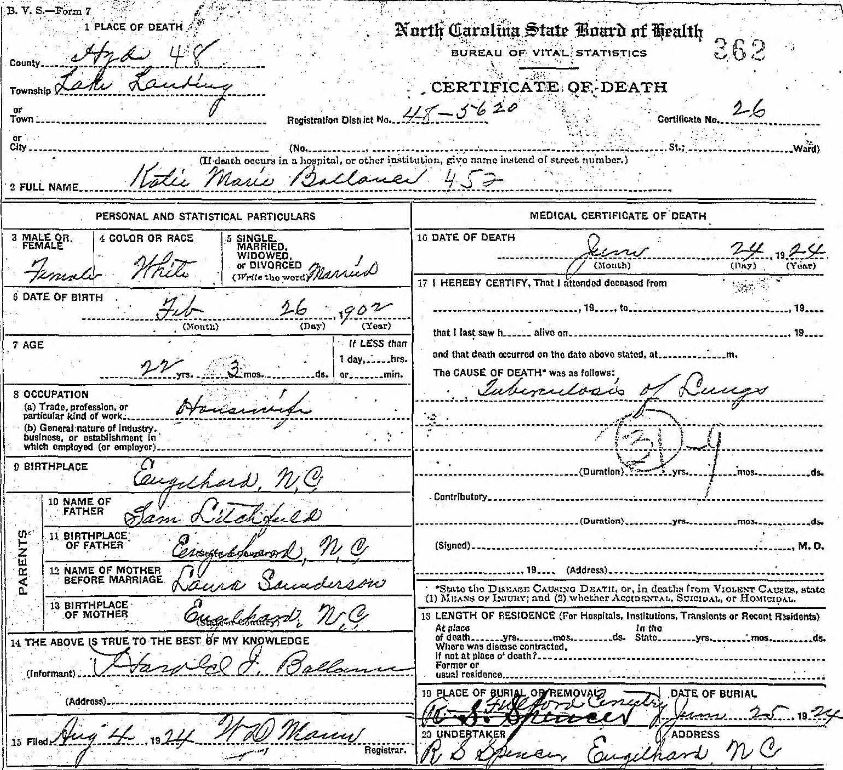 B. V. S.—Form 7
1 PLACE OF DEATH
North Carolina State Board of Health
BUREAU OF VITAL STATISTICS
362
County Hyde 48
CERTIFICATE OF DEATH
Township Lake Landing
or Town
Registration District No. 48-5620
Certificate No. 26
or City
(No. St.; Ward)
(If death occurs in a hospital, or other institution, give name instead of street number.)
2 FULL NAME Katie Marie Ballance 452
PERSONAL AND STATISTICAL PARTICULARS
3 MALE OR FEMALE Female
4 COLOR OR RACE White
5 SINGLE, MARRIED, WIDOWED, or DIVORCED (Write the word) Married
6 DATE OF BIRTH Feb 26, 1902
(Month) (Day) (Year)
7 AGE
22 yrs. 3 mos. ds.
If LESS than 1 day, hrs. or min.
8 OCCUPATION
(a) Trade, profession, or particular kind of work Housewife
(b) General nature of industry, business, or establishment in which employed (or employer)
9 BIRTHPLACE
Engelhard, N.C.
PARENTS
10 NAME OF FATHER Sam Litchfield
11 BIRTHPLACE OF FATHER Engelhard, N.C.
12 NAME OF MOTHER BEFORE MARRIAGE Laura Saunderson
13 BIRTHPLACE OF MOTHER Engelhard, N.C.
14 THE ABOVE IS TRUE TO THE BEST OF MY KNOWLEDGE
(Informant) Harold J. Ballance
(Address)
15 Filed Aug 4, 1924 W D Mann
Registrar.
MEDICAL CERTIFICATE OF DEATH
16 DATE OF DEATH
June 24, 1924
(Month) (Day) (Year)
17 I HEREBY CERTIFY, That I attended deceased from
, 19 , to , 19
that I last saw h alive on , 19
and that death occurred on the date above stated, at m.
The CAUSE OF DEATH* was as follows:
Tuberculosis of Lungs
31-9
(Duration) yrs. mos. ds.
Contributory
(Duration) yrs. mos. ds.
(Signed) , M. D.
, 19 (Address)
*State the DISEASE CAUSING DEATH, or, in deaths from VIOLENT CAUSES, state
(1) MEANS OF INJURY; and (2) whether ACCIDENTAL, SUICIDAL, or HOMICIDAL.
18 LENGTH OF RESIDENCE (For Hospitals, Institutions, Transients or Recent Residents)
At place of death yrs. mos. ds. In the State yrs. mos. ds.
Where was disease contracted,
If not at place of death?
Former or usual residence
19 PLACE OF BURIAL OR REMOVAL
Fulford Cemetry
R. S. Spencer
DATE OF BURIAL
June 25, 1924
20 UNDERTAKER
R S Spencer
ADDRESS
Engelhard NC